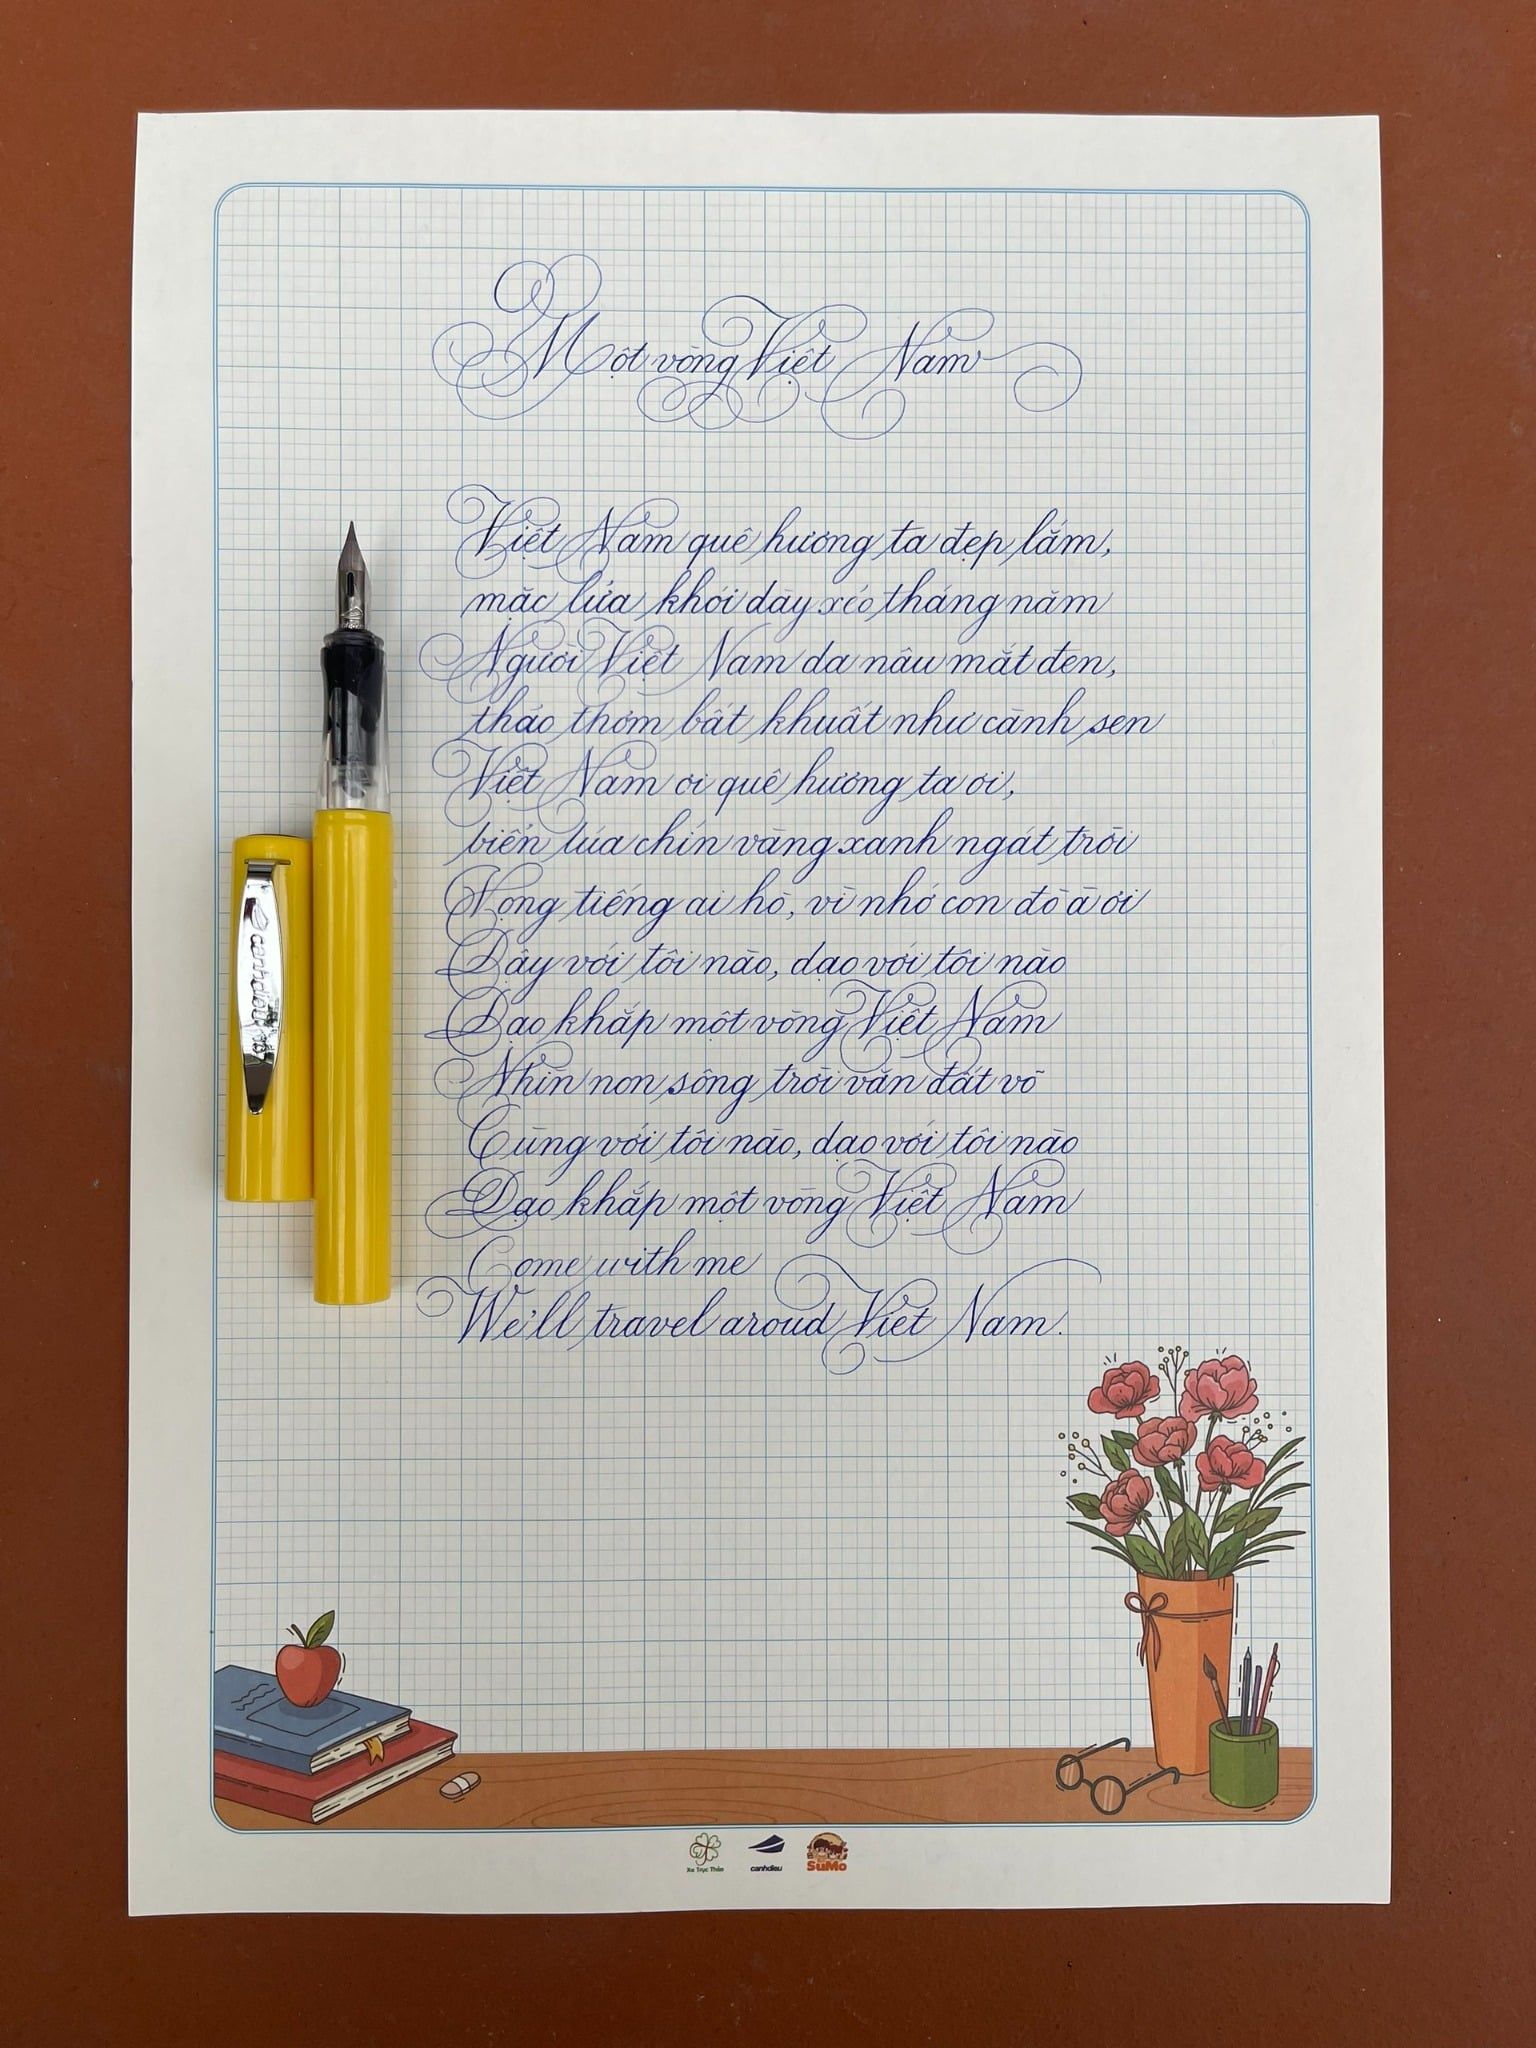 Một vòng Việt Nam
Việt Nam quê hương ta đẹp lắm,
mặc lửa khói dày xéo tháng năm
Người Việt Nam da nâu mắt đen,
thảo thơm bất khuất như cành sen
Việt Nam ơi quê hương ta ơi,
biển lúa chín vàng xanh ngát trời
Vọng tiếng ai hò, vì nhớ con đò à ơi
Dậy với tôi nào, dạo với tôi nào
Dạo khắp một vòng Việt Nam
Nhìn non sông trời văn đất võ
Cùng với tôi nào, dạo với tôi nào
Dạo khắp một vòng Việt Nam
Come with me
We'll travel aroud Việt Nam.
canhdieu
SuMo